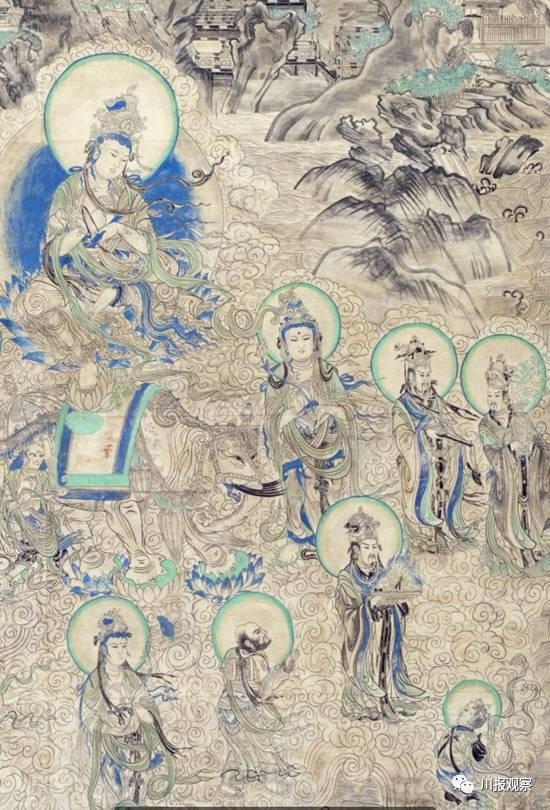 川报观察